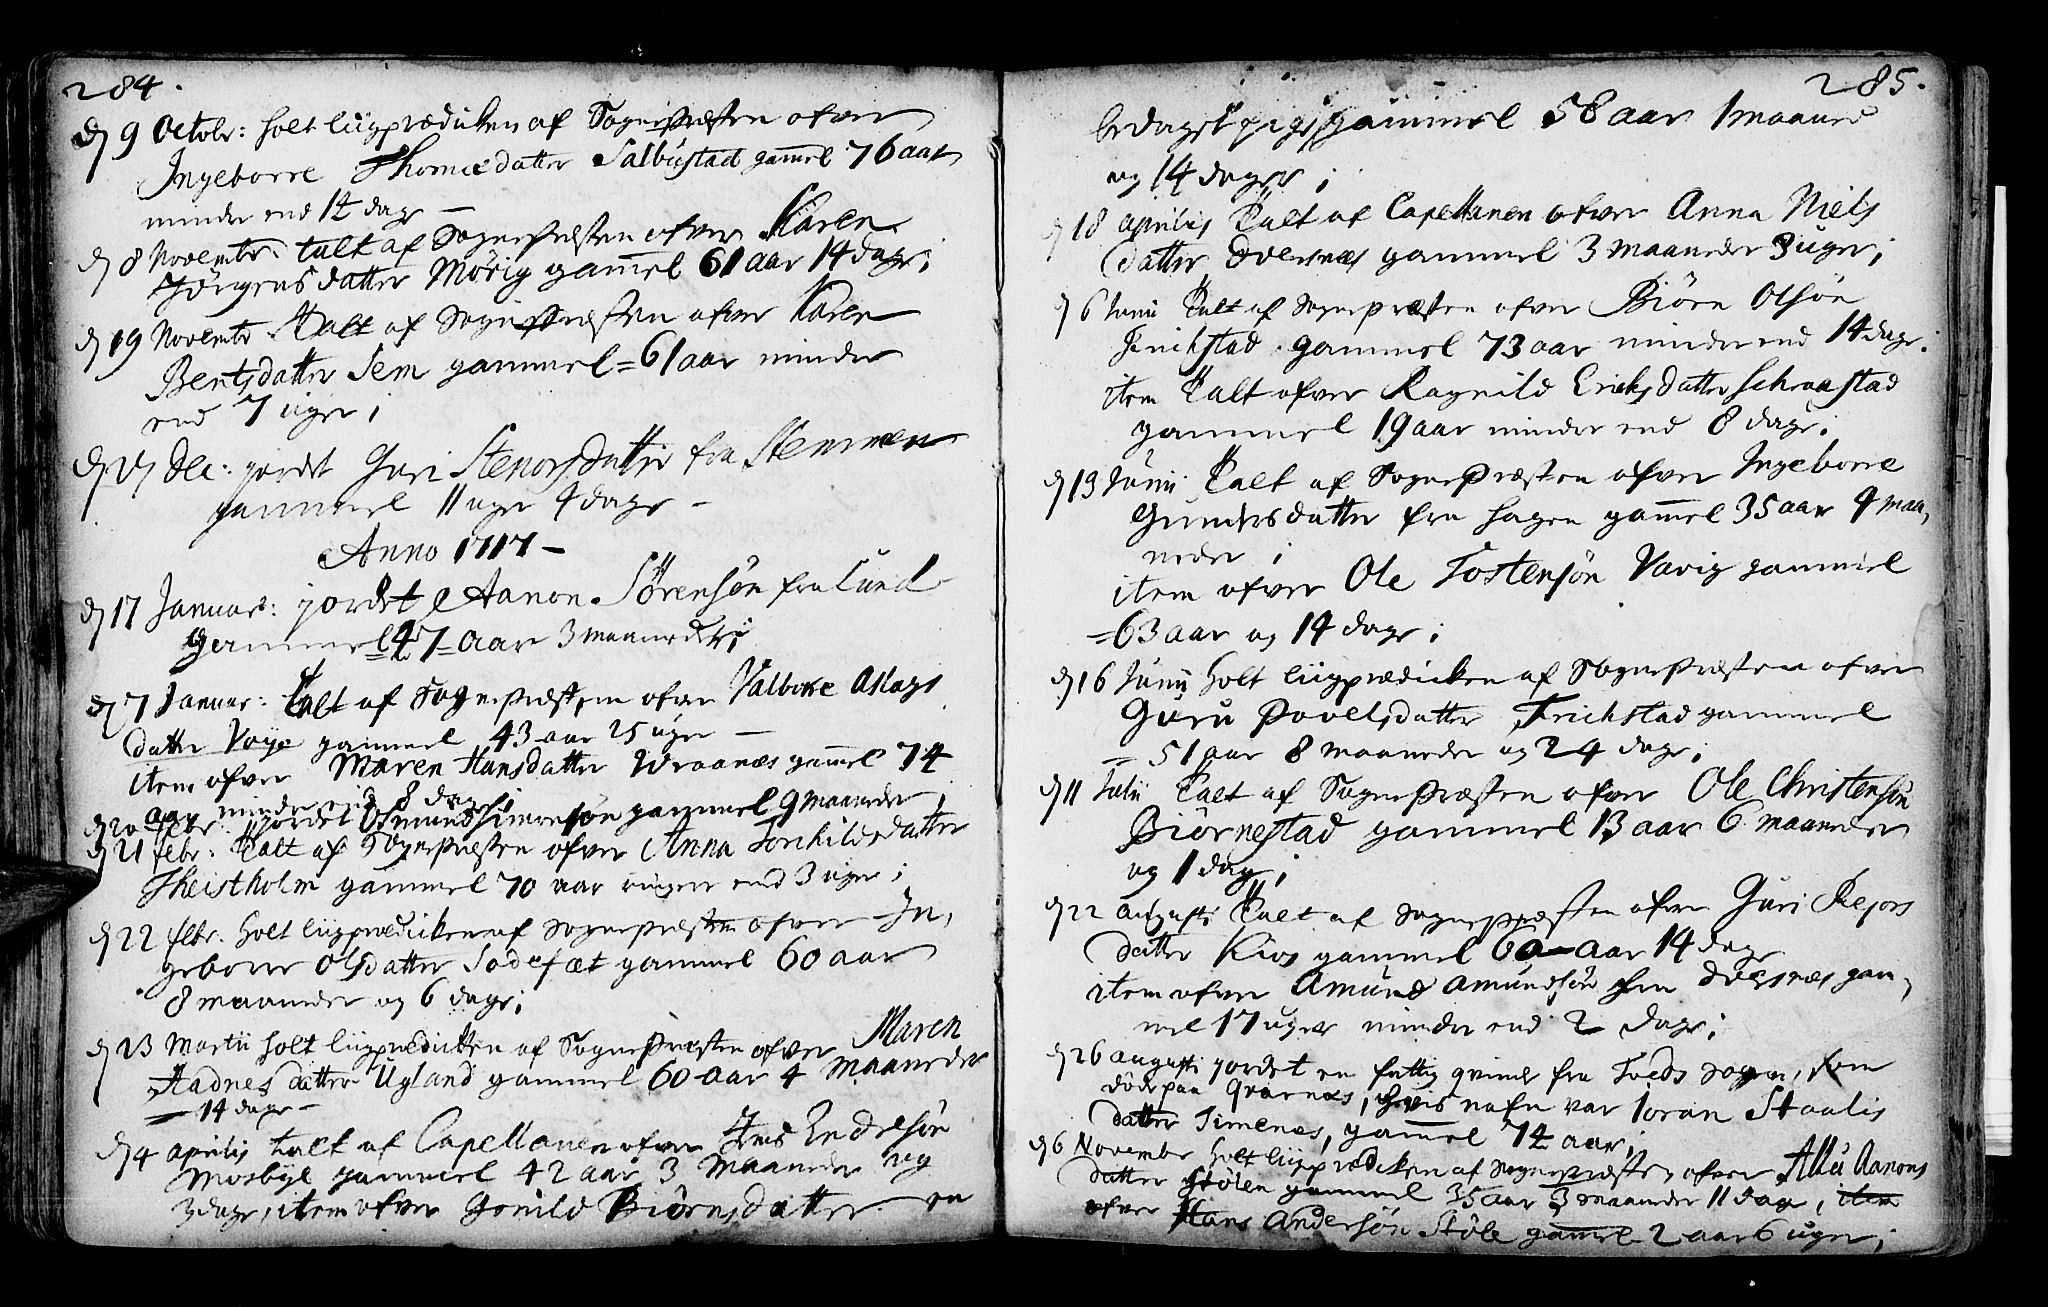 284.
d 9 Octobr: holt liigprædicken af Sognepræsten ofver
Ingeborre Thomæ datter Salbustad gamel 76 aar
minder end 14 dage –
d 8 Novembr: talt af Sognepræsten ofver Karen
Jørgens datter Mörig gamel 61 aar 14 dage;
d 19 Novembr Talt af Sognepræsten ofver Karen
Bentsdatter Sem gammel = 61 aar minder
end 7 uger;
Dec: jordet Guri Stenorsdatter fra
gammel 11 uger 4 dage –
Anno 1717 –
d 17 Januar: jordet Aanon Sörensön fra Lund
gammel 47 aar 3 maaneder;
d 7 Januar: Talt af Sognepræsten ofver Valborre Aslags
datter Voye gammel 43 aar 25 uger –
item ofver Maren Hansdatter Wraanæs gamel 74
aar minder end 8 dage;
d 20 febr: jordet Osmund Simonsön gammel 9 maaneder
d 21 febr: Talt af Sognepræsten ofver Anna Torkildsdatter
Theistholm gammel 70 aar ringere end 3 uger;
d 22 febr: holt liigprædicken af Sognepræsten ofver In,
geborre Olsdatter Sodefæt gammel 60 aar
8 maaneder og 6 dage;
d 23 Martii holt liigprædicken af Sognepræsten ofver Maren
Aadnes datter Ugland gammel 60 aar 4 maaneder
14 dage –
d 4 Aprilis talt af Capellanen ofver Jens Endresön
Mosbye gammel 42 aar 3 maaneder og
3 dage, item ofver Gonild Biörnsdatter en
285.
bedaget pige gammel 58 aar 1 maaned
og 14 dager;
d 18 aprilis Talt af Capellanen ofver Anna Niels
datter Dversnæs gammel 3 maaneder 3 uger;
d 6 Junii Talt af Sognepræsten ofver Biörn Olsön
Frichstad gammel 73 aar minder end 14 dage.
item Talt ofver Ragnild Erichsdatter Schraastad
gammel 19 aar minder end 8 dage.
d 13 Junii Talt af Sognepræsten ofver Ingeborre
Gundersdatter fra Hagen gamel 35 aar 9 maa,
neder;
item ofver Ole Tostensön Varig gammel
= 63 aar og 14 dage;
d 16 Junii holt liigprædicken af Sognepræsten ofver
Guru Povelsdatter Frichstad gammel
= 51 aar 8 maaneder og 24 dage;
d 11 Julii Talt af Sognepræsten ofver Ole Christensön
Biörnestad gammel 13 aar 6 maaneder
og 1 dag;
d 22 Augusti Talt af Sognepræsten ofver Guri Rejors
datter Kios gammel 60 aar 14 dage
item ofver Amund Amundsön fra Dversnæs gam,
mel 17 uger minder end 2 dage;
d 26 augusti jordet en fattig qvinde fra Tveds Sogen, som
döde paa Qvarnæs, hvis nafn var Joran Staalis
datter Timenes, gamel 74 aar;
d 6 November holt liigprædicken af Sognepræsten ofver Allu Aanons
datter Stölen gammel 35 aar 3 maaneder 11 dage, item
ofver Hans Andersön Stöle gammel 2 aar 6 uger;